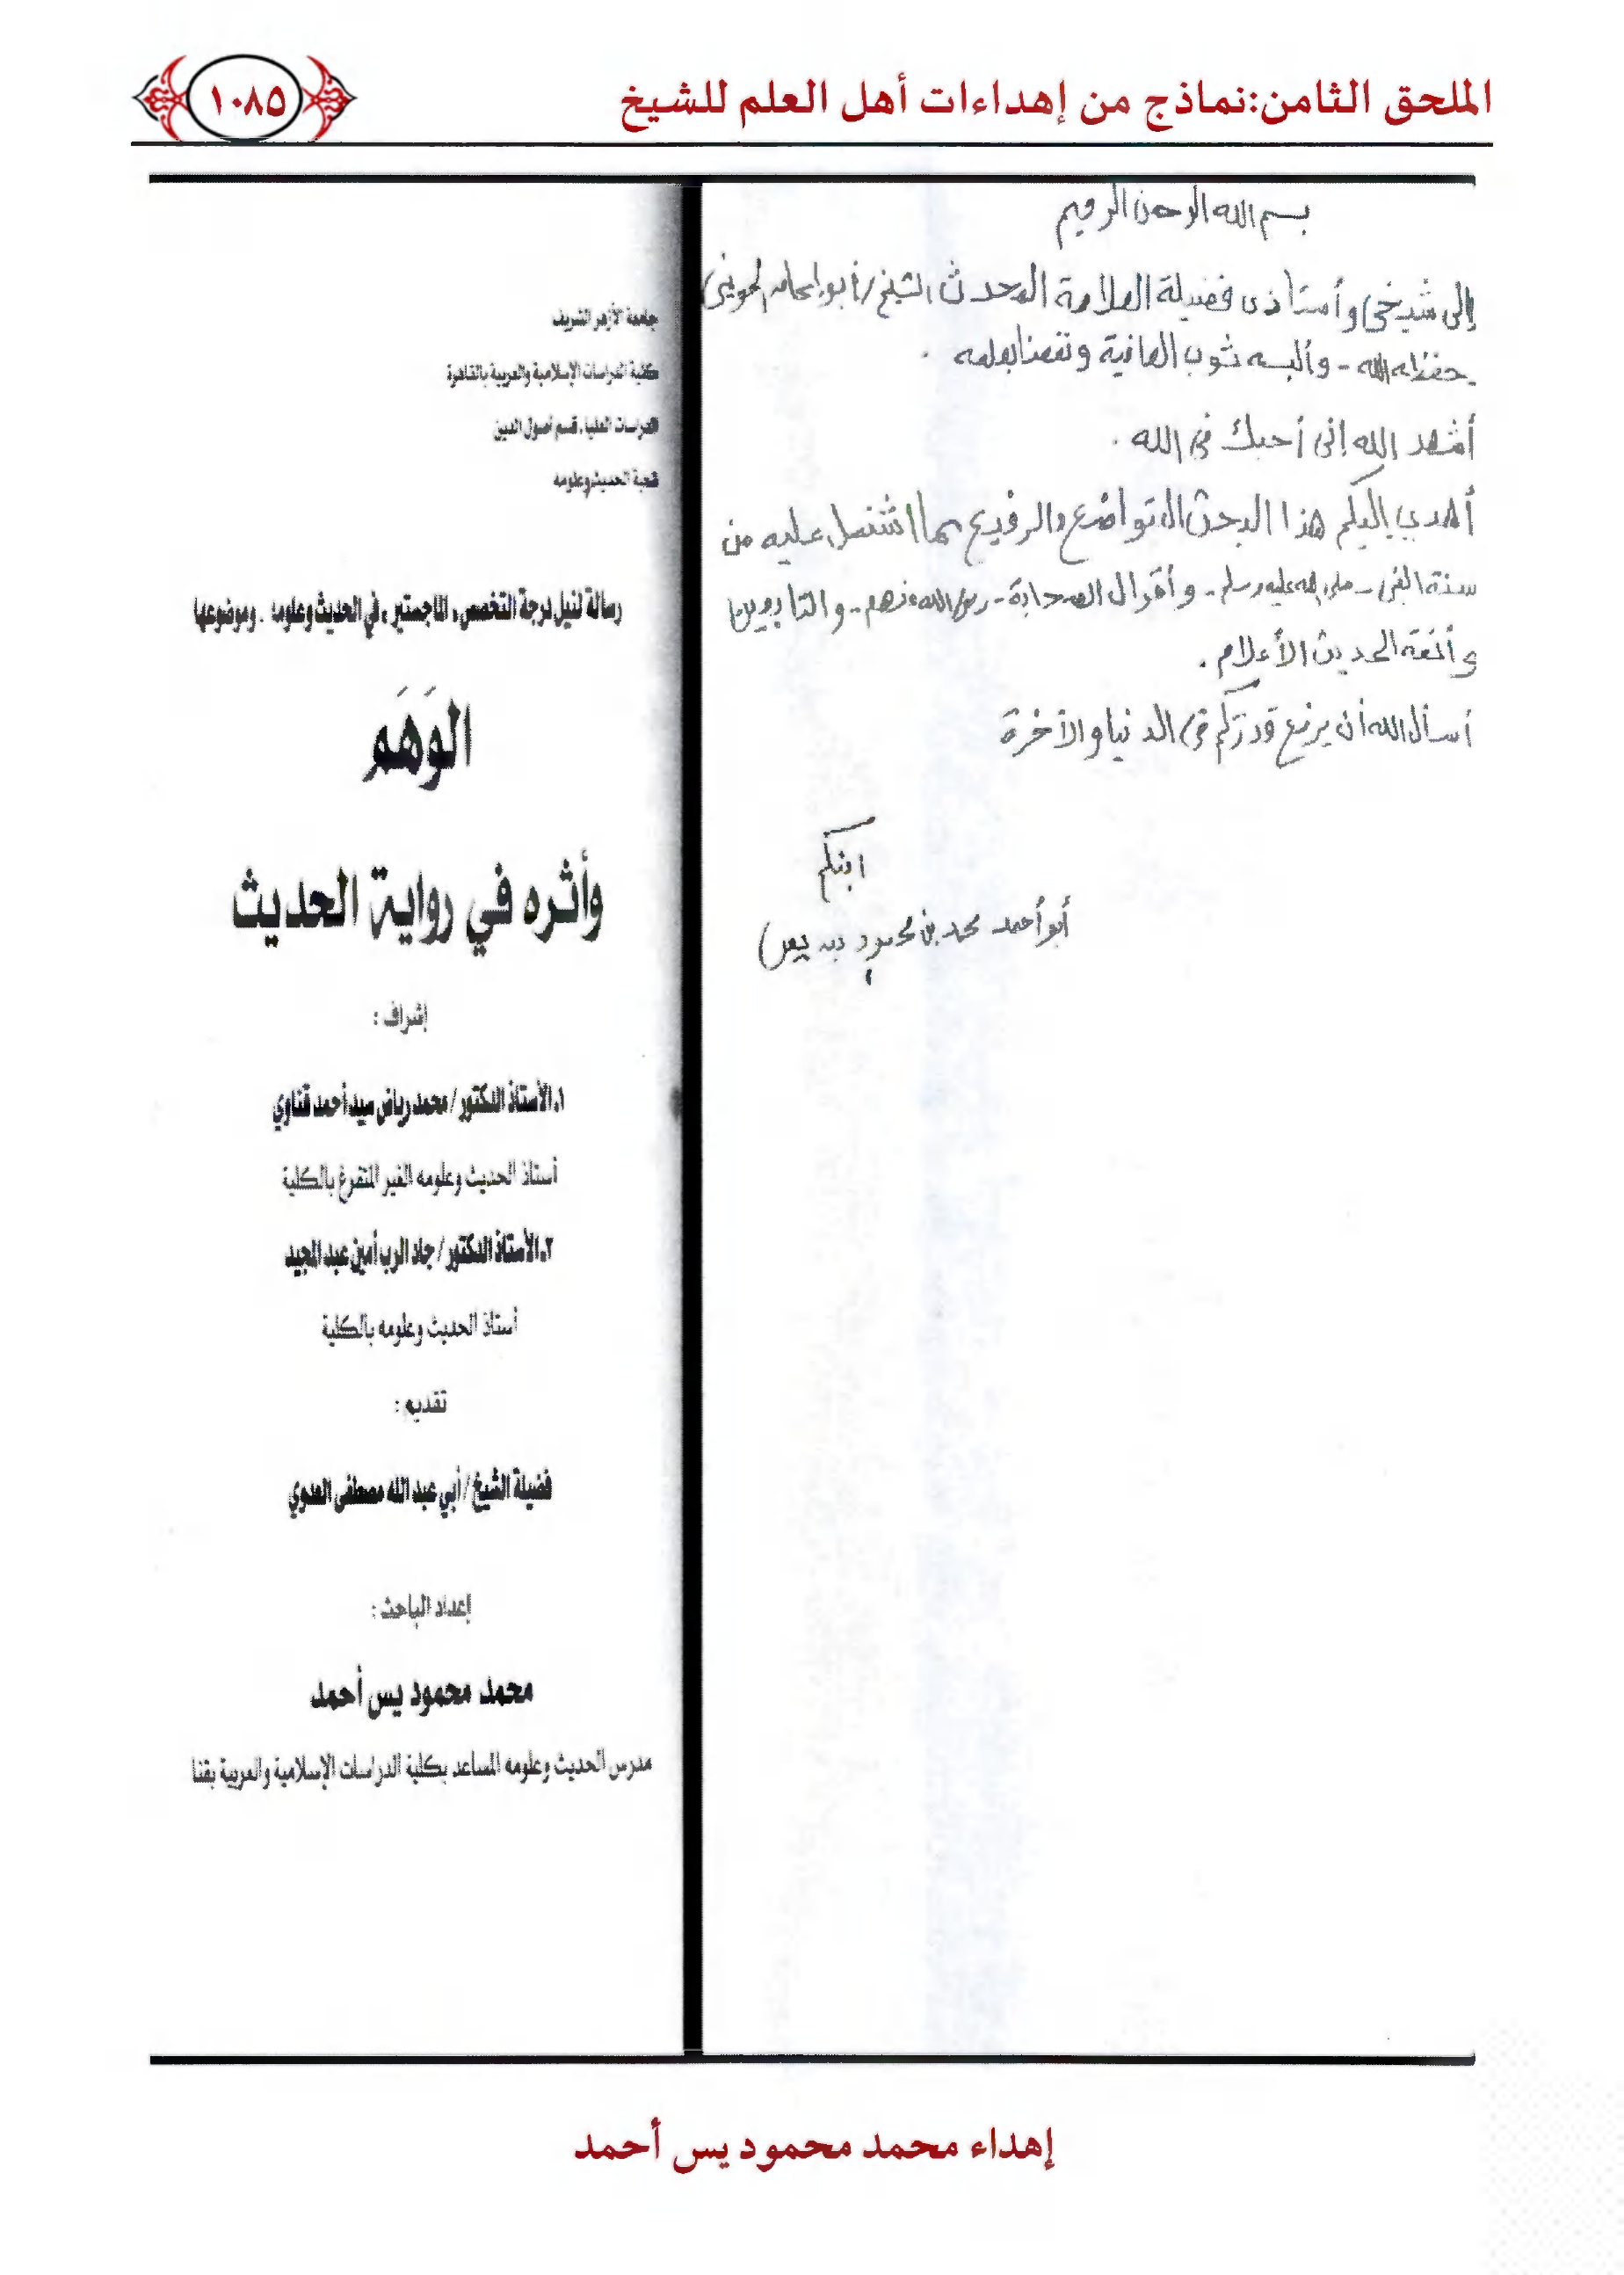 الملحق الثامن:نماذج من إهداءات أهل العلم للشيخ
١٠٨٥
بسم الله الرحمن الرحيم
إلى شيخي وأستاذي فضيلة العلامة المحدث الشيخ/ أبو إسحاق الحويني
حفظه الله - وألبسه ثوب العافية ونفعنا بعلمه .
أشهد الله إنى أحبك فى الله .
أهدي إليكم هذا البحث المتواضع والرفيع بما اشتمل عليه من
سنة النبى - صلى الله عليه وسلم - وأقوال الصحابة - رضى الله عنهم - والتابعين
وأئمة الحديث الأعلام .
أسأل الله أن يرفع قدركم فى الدنيا والآخرة
ابنكم
أبو أحمد محمد بن محمود بن يس
جامعة الأزهر الشريف
كلية الدراسات الإسلامية والعربية بالقاهرة
الدراسات العليا . قسم أصول الدين
شعبة الحديث وعلومه
رسالة لنيل درجة التخصص « الماجستير » في الحديث وعلومه . وموضوعها
الوَهَم
وأثره في رواية الحديث
إشراف :
١ـ الأستاذ الدكتور / محمد رياض سيد أحمد قناوي
أستاذ الحديث وعلومه الغير المتفرغ بالكلية
٢ـ الأستاذ الدكتور / جاد الرب أمين عبد المجيد
أستاذ الحديث وعلومه بالكلية
تقديم :
فضيلة الشيخ / أبي عبد الله مصطفى العدوي
إعداد الباحث :
محمد محمود يس أحمد
مدرس الحديث وعلومه المساعد بكلية الدراسات الإسلامية والعربية بقنا
إهداء محمد محمود يس أحمد